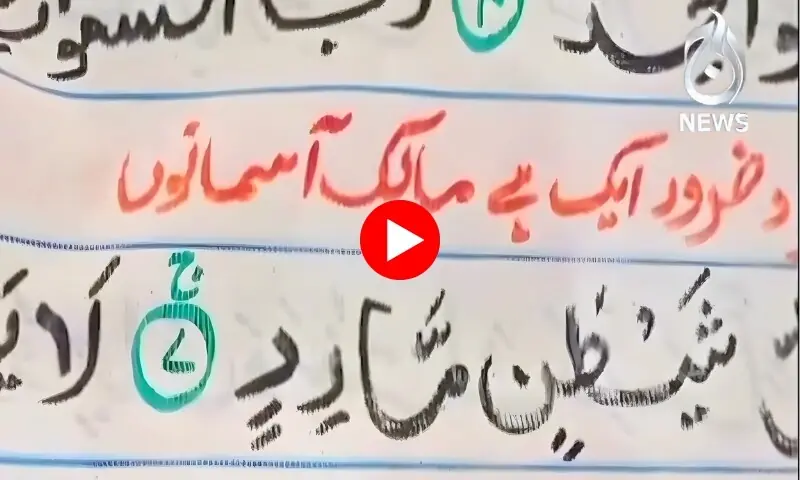 واحد ۴ رب السموت
NEWS
ضرور ایک ہے مالک آسمانوں
شَيْطٰنٍ مَّارِدٍ ۷ ج لَا يَ